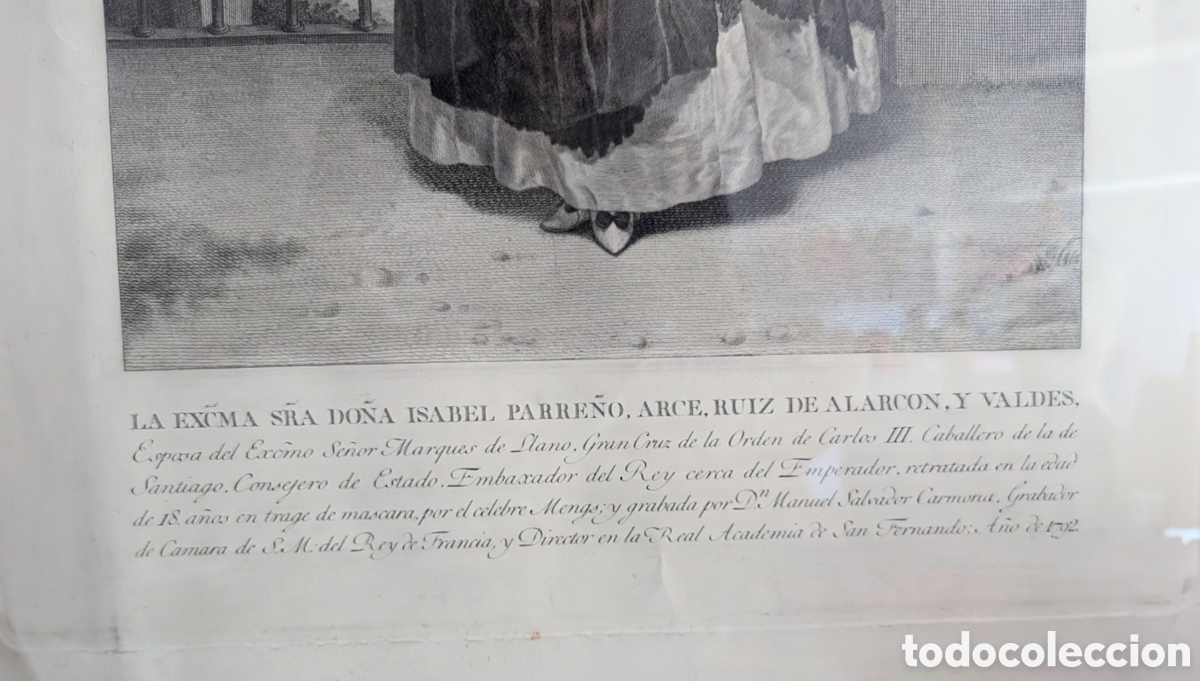 LA EXC̃MA SR̃A DOÑA ISABEL PARREÑO, ARCE, RUIZ DE ALARCON, Y VALDES,
Esposa del Exc̃mo Señor Marques de Llano, Gran Cruz de la Orden de Carlos III. Caballero de la de
Santiago, Consejero de Estado, Embaxador del Rey cerca del Emperador, retratada en la edad
de 18. años en trage de mascara, por el celebre Mengs; y grabada por Dn. Manuel Salvador Carmona, Grabador
de Camara de S.M. del Rey de Francia, y Director en la Real Academia de San Fernando: Año de 1792.
todocoleccion